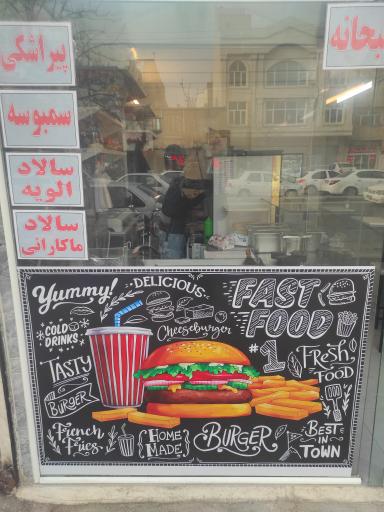 پیراشکی
سمبوسه
سالاد
الویه
سالاد
ماکارانی
بحانه
Yummy!
DELICIOUS
FAST
FOOD
COLD
DRINKS
Cheeseburger
#1
TASTY
BURGER
Fresh
FOOD
French
Fries
HOME
MADE
BURGER
BEST
IN
TOWN